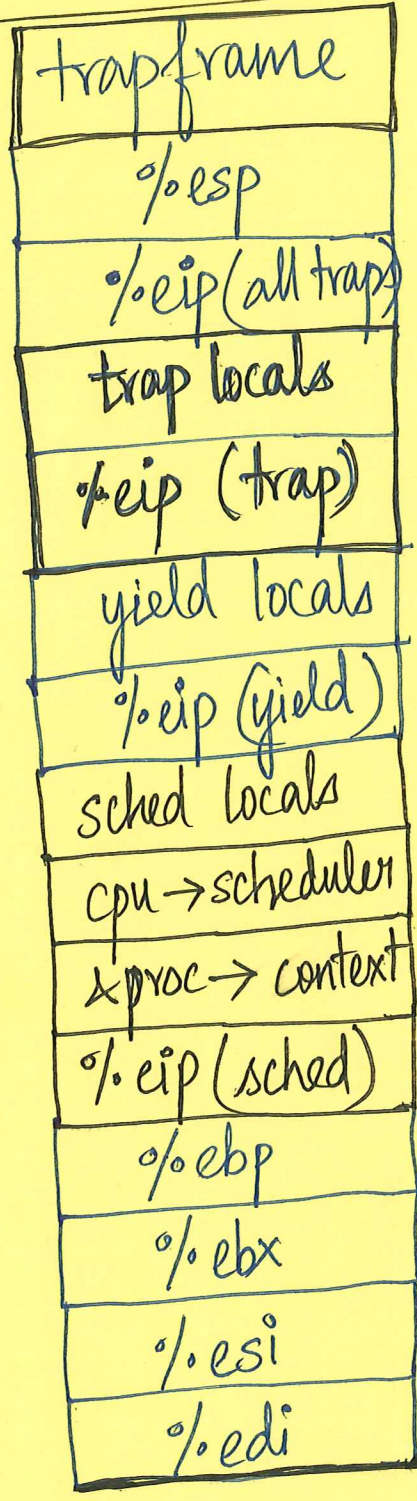 trapframe
%esp
%eip (all traps)
trap locals
%eip (trap)
yield locals
%eip (yield)
sched locals
cpu → scheduler
&proc → context
%eip (sched)
%ebp
%ebx
%esi
%edi